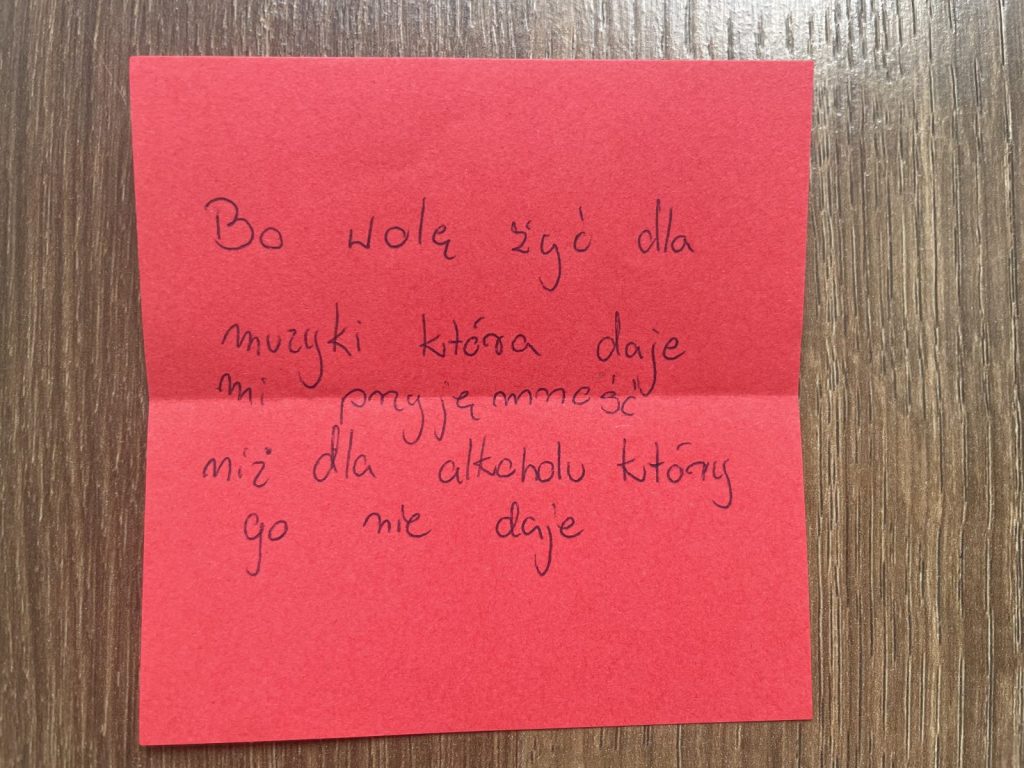 Bo wolę żyć dla
muzyki która daje
mi przyjęmność
niż dla alkoholu który
go nie daje